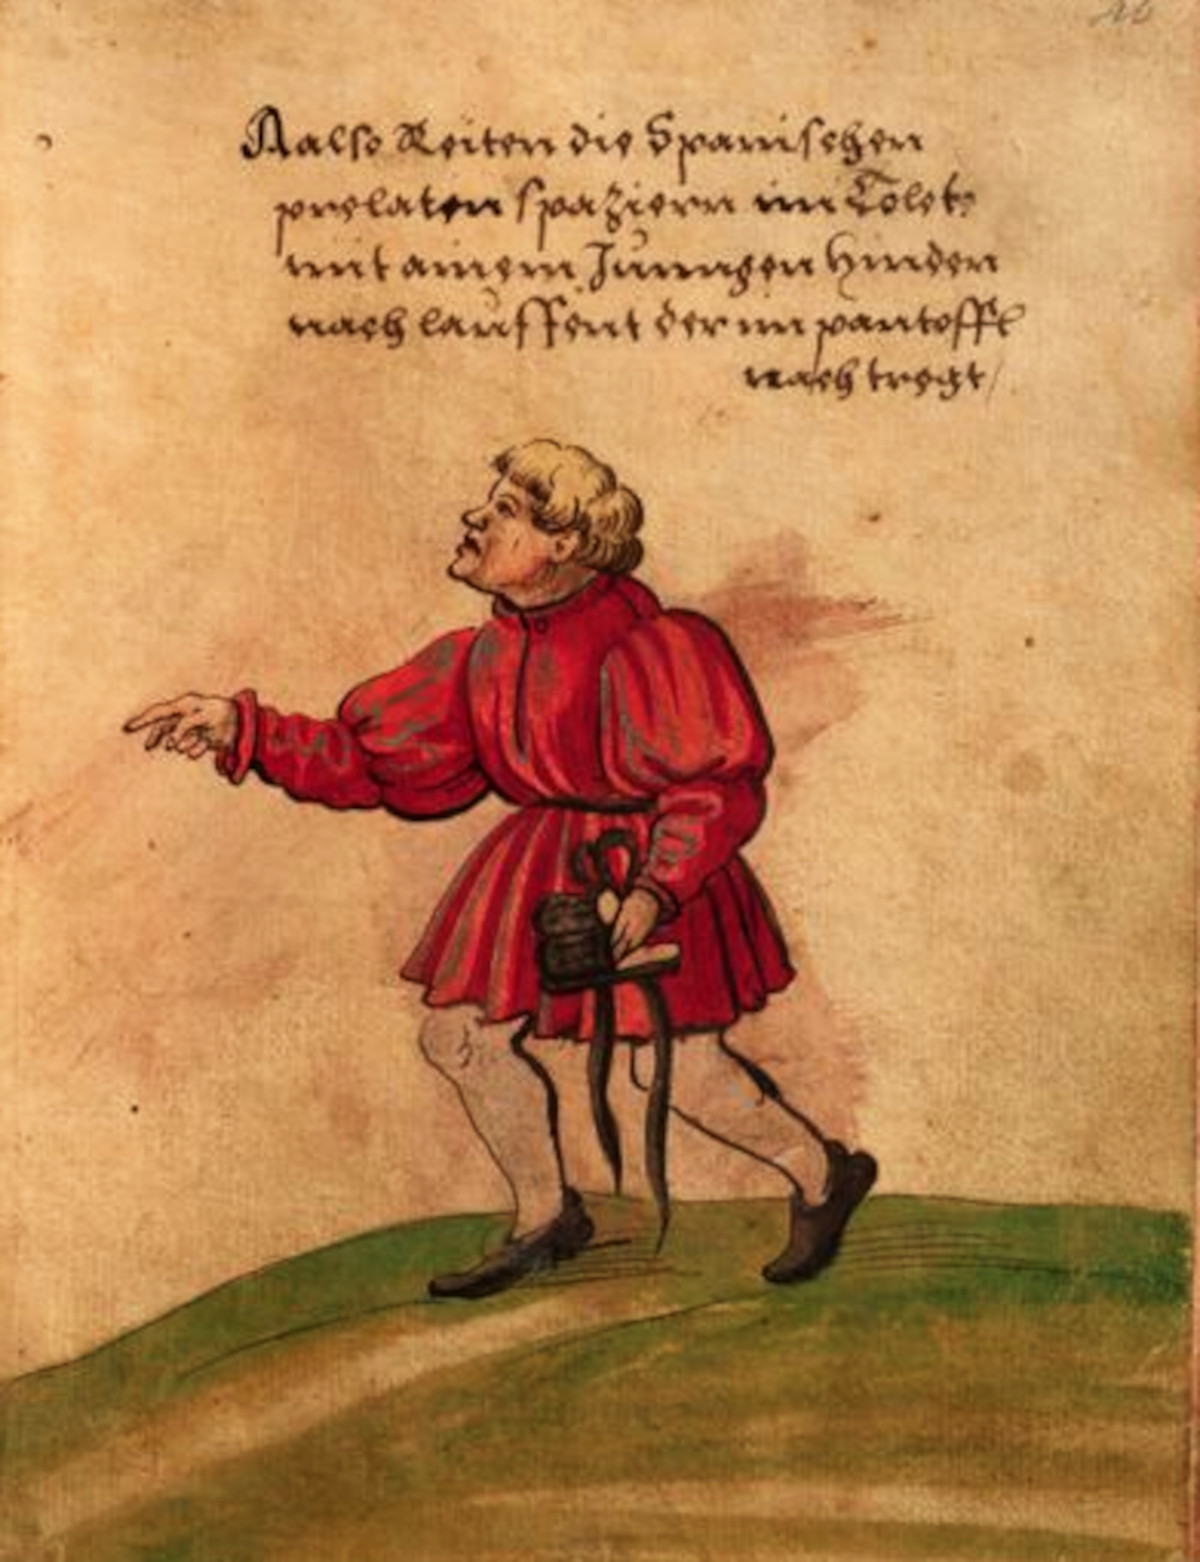 Aalso Reiten die Spanischen
prelaten spaziern im Tolet
mit ainem Jungen hinden
nach lauffent der im pantoffl
nach tregt /